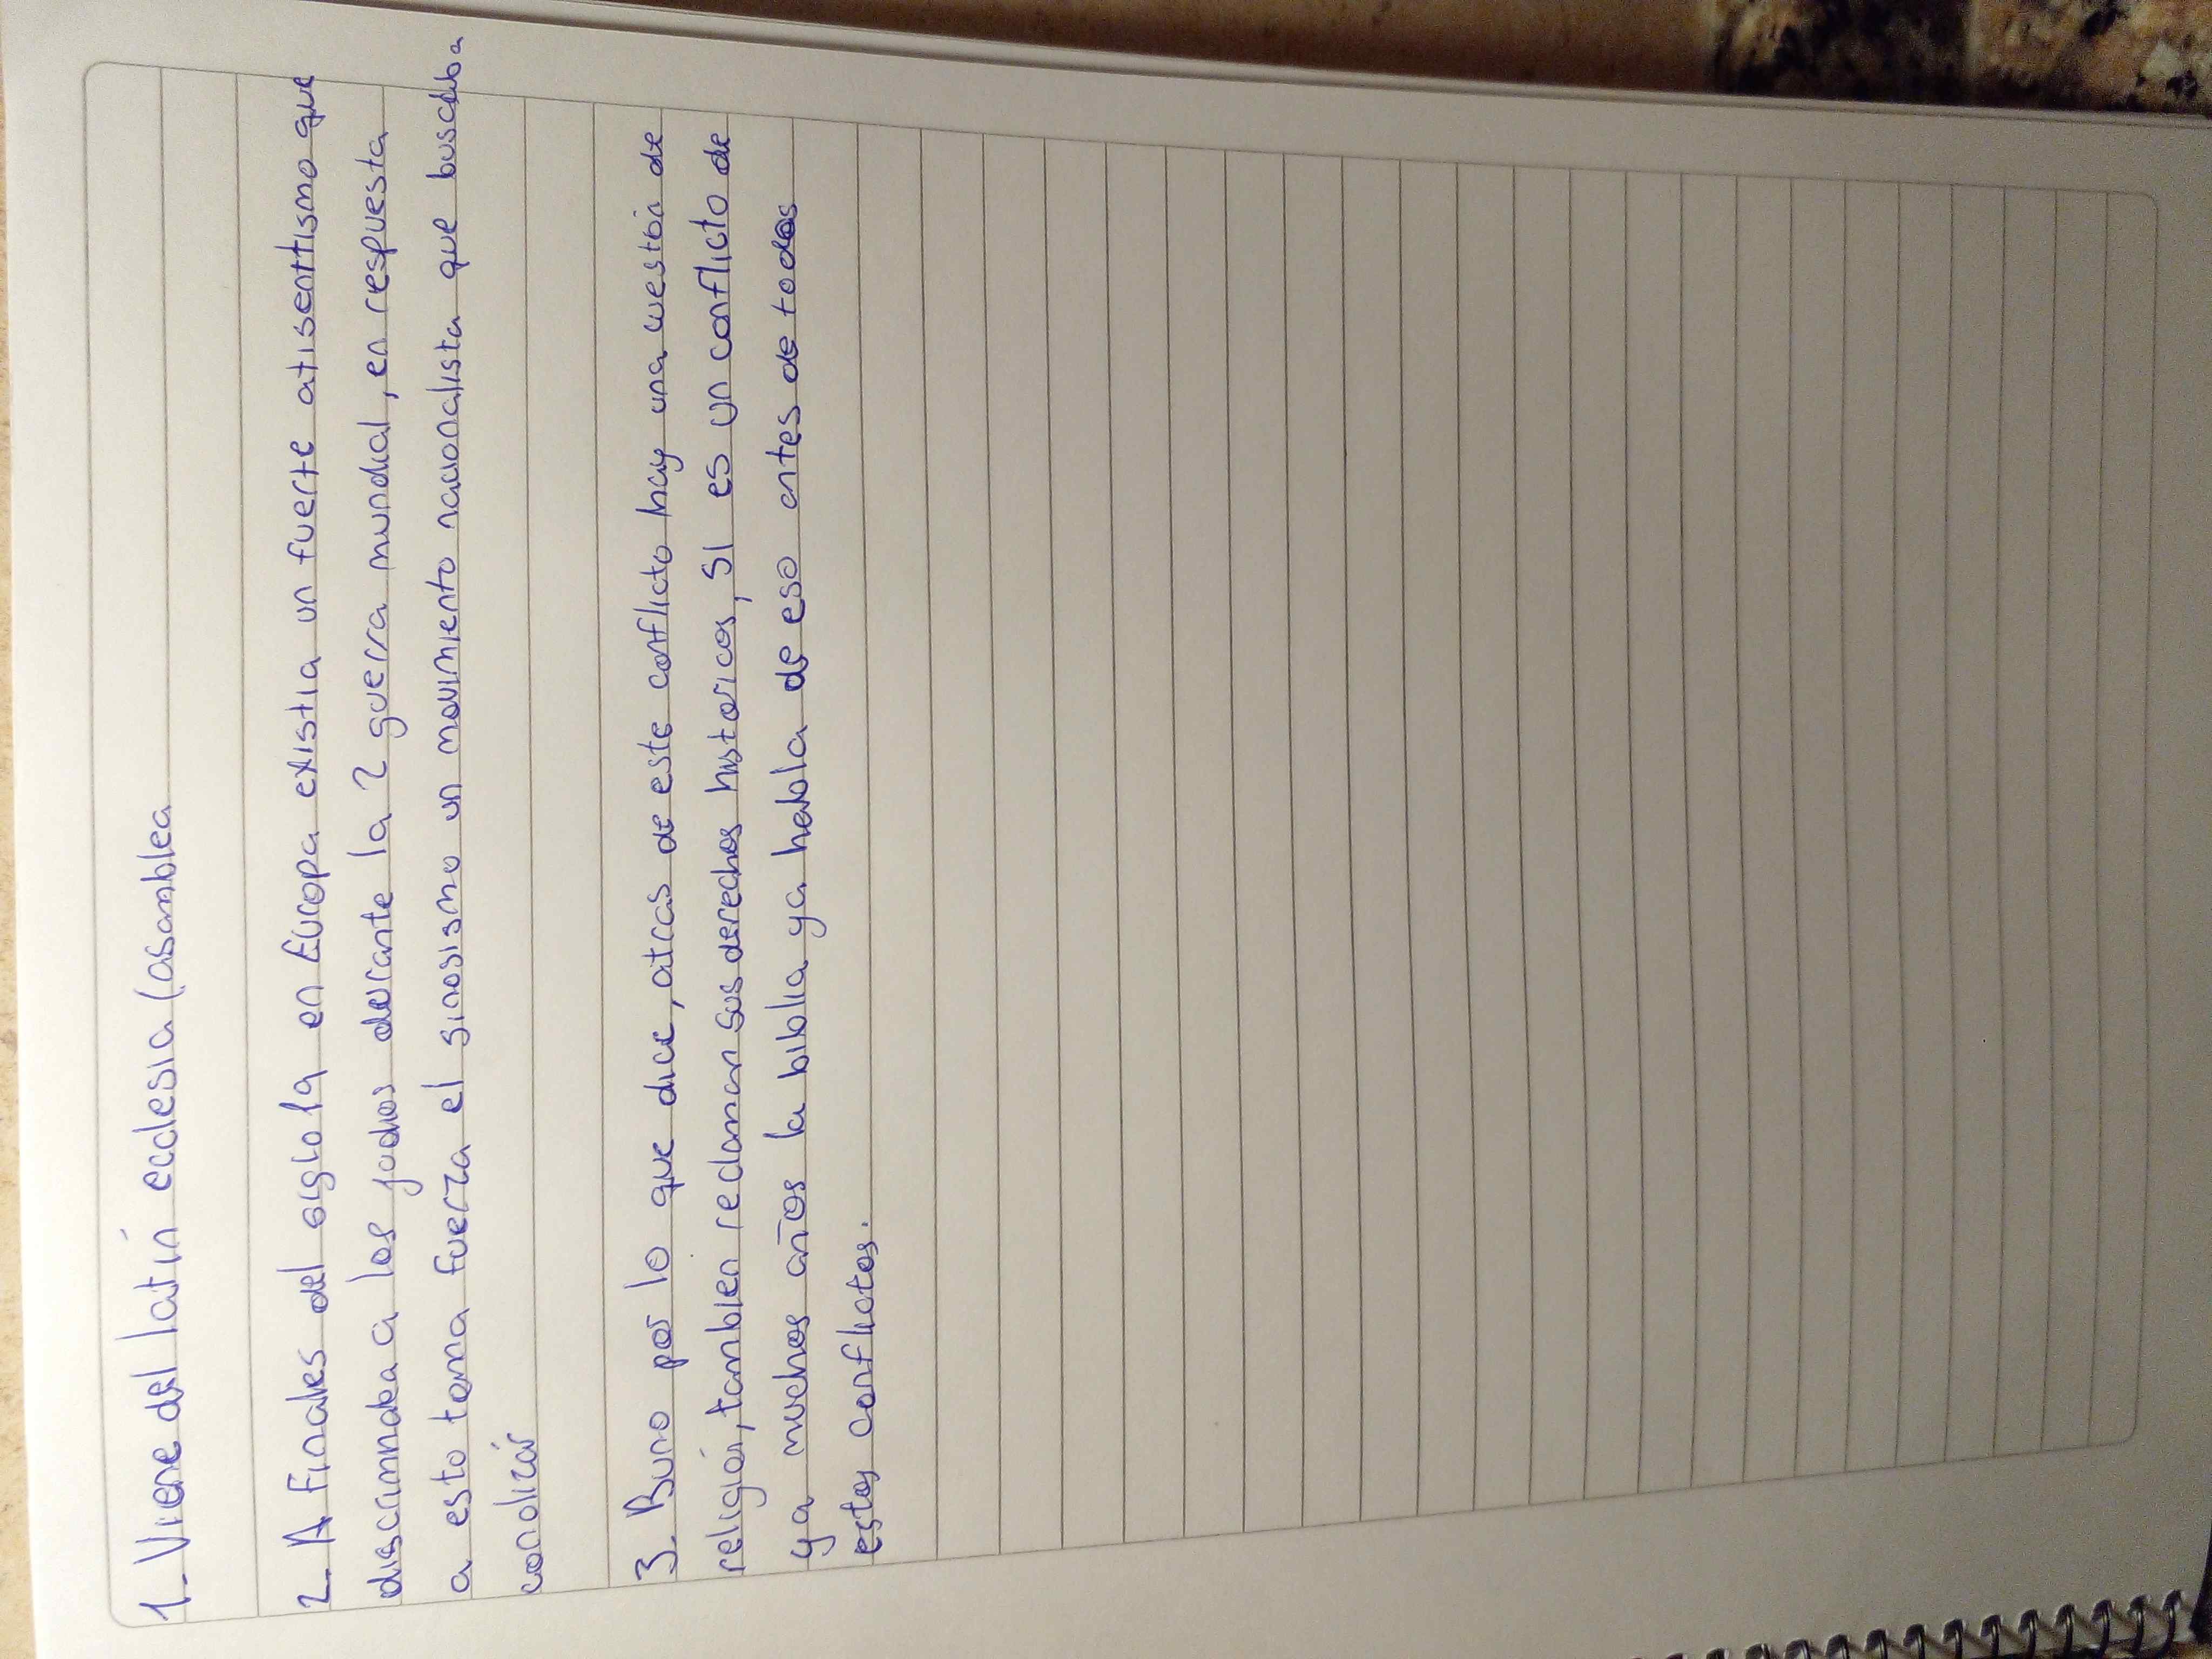 1. Viene del latín ecclesia (asamblea
2. A Finales del siglo 19 en Europa existia un fuerte atisentismo que
discriminaba a los judios durante la 2 guerra mundial, en respuesta
a esto toma fuerza el sinosismo un movimiento nacionalista que buscaba
condición
3. Bueno por lo que dice, atras de este conflicto hay una cuestión de
religión, tambien reclaman sus derechos historicos, si es un conflicto de
ya muchos años la biblia ya habla de eso antes de todos
estos conflictos.